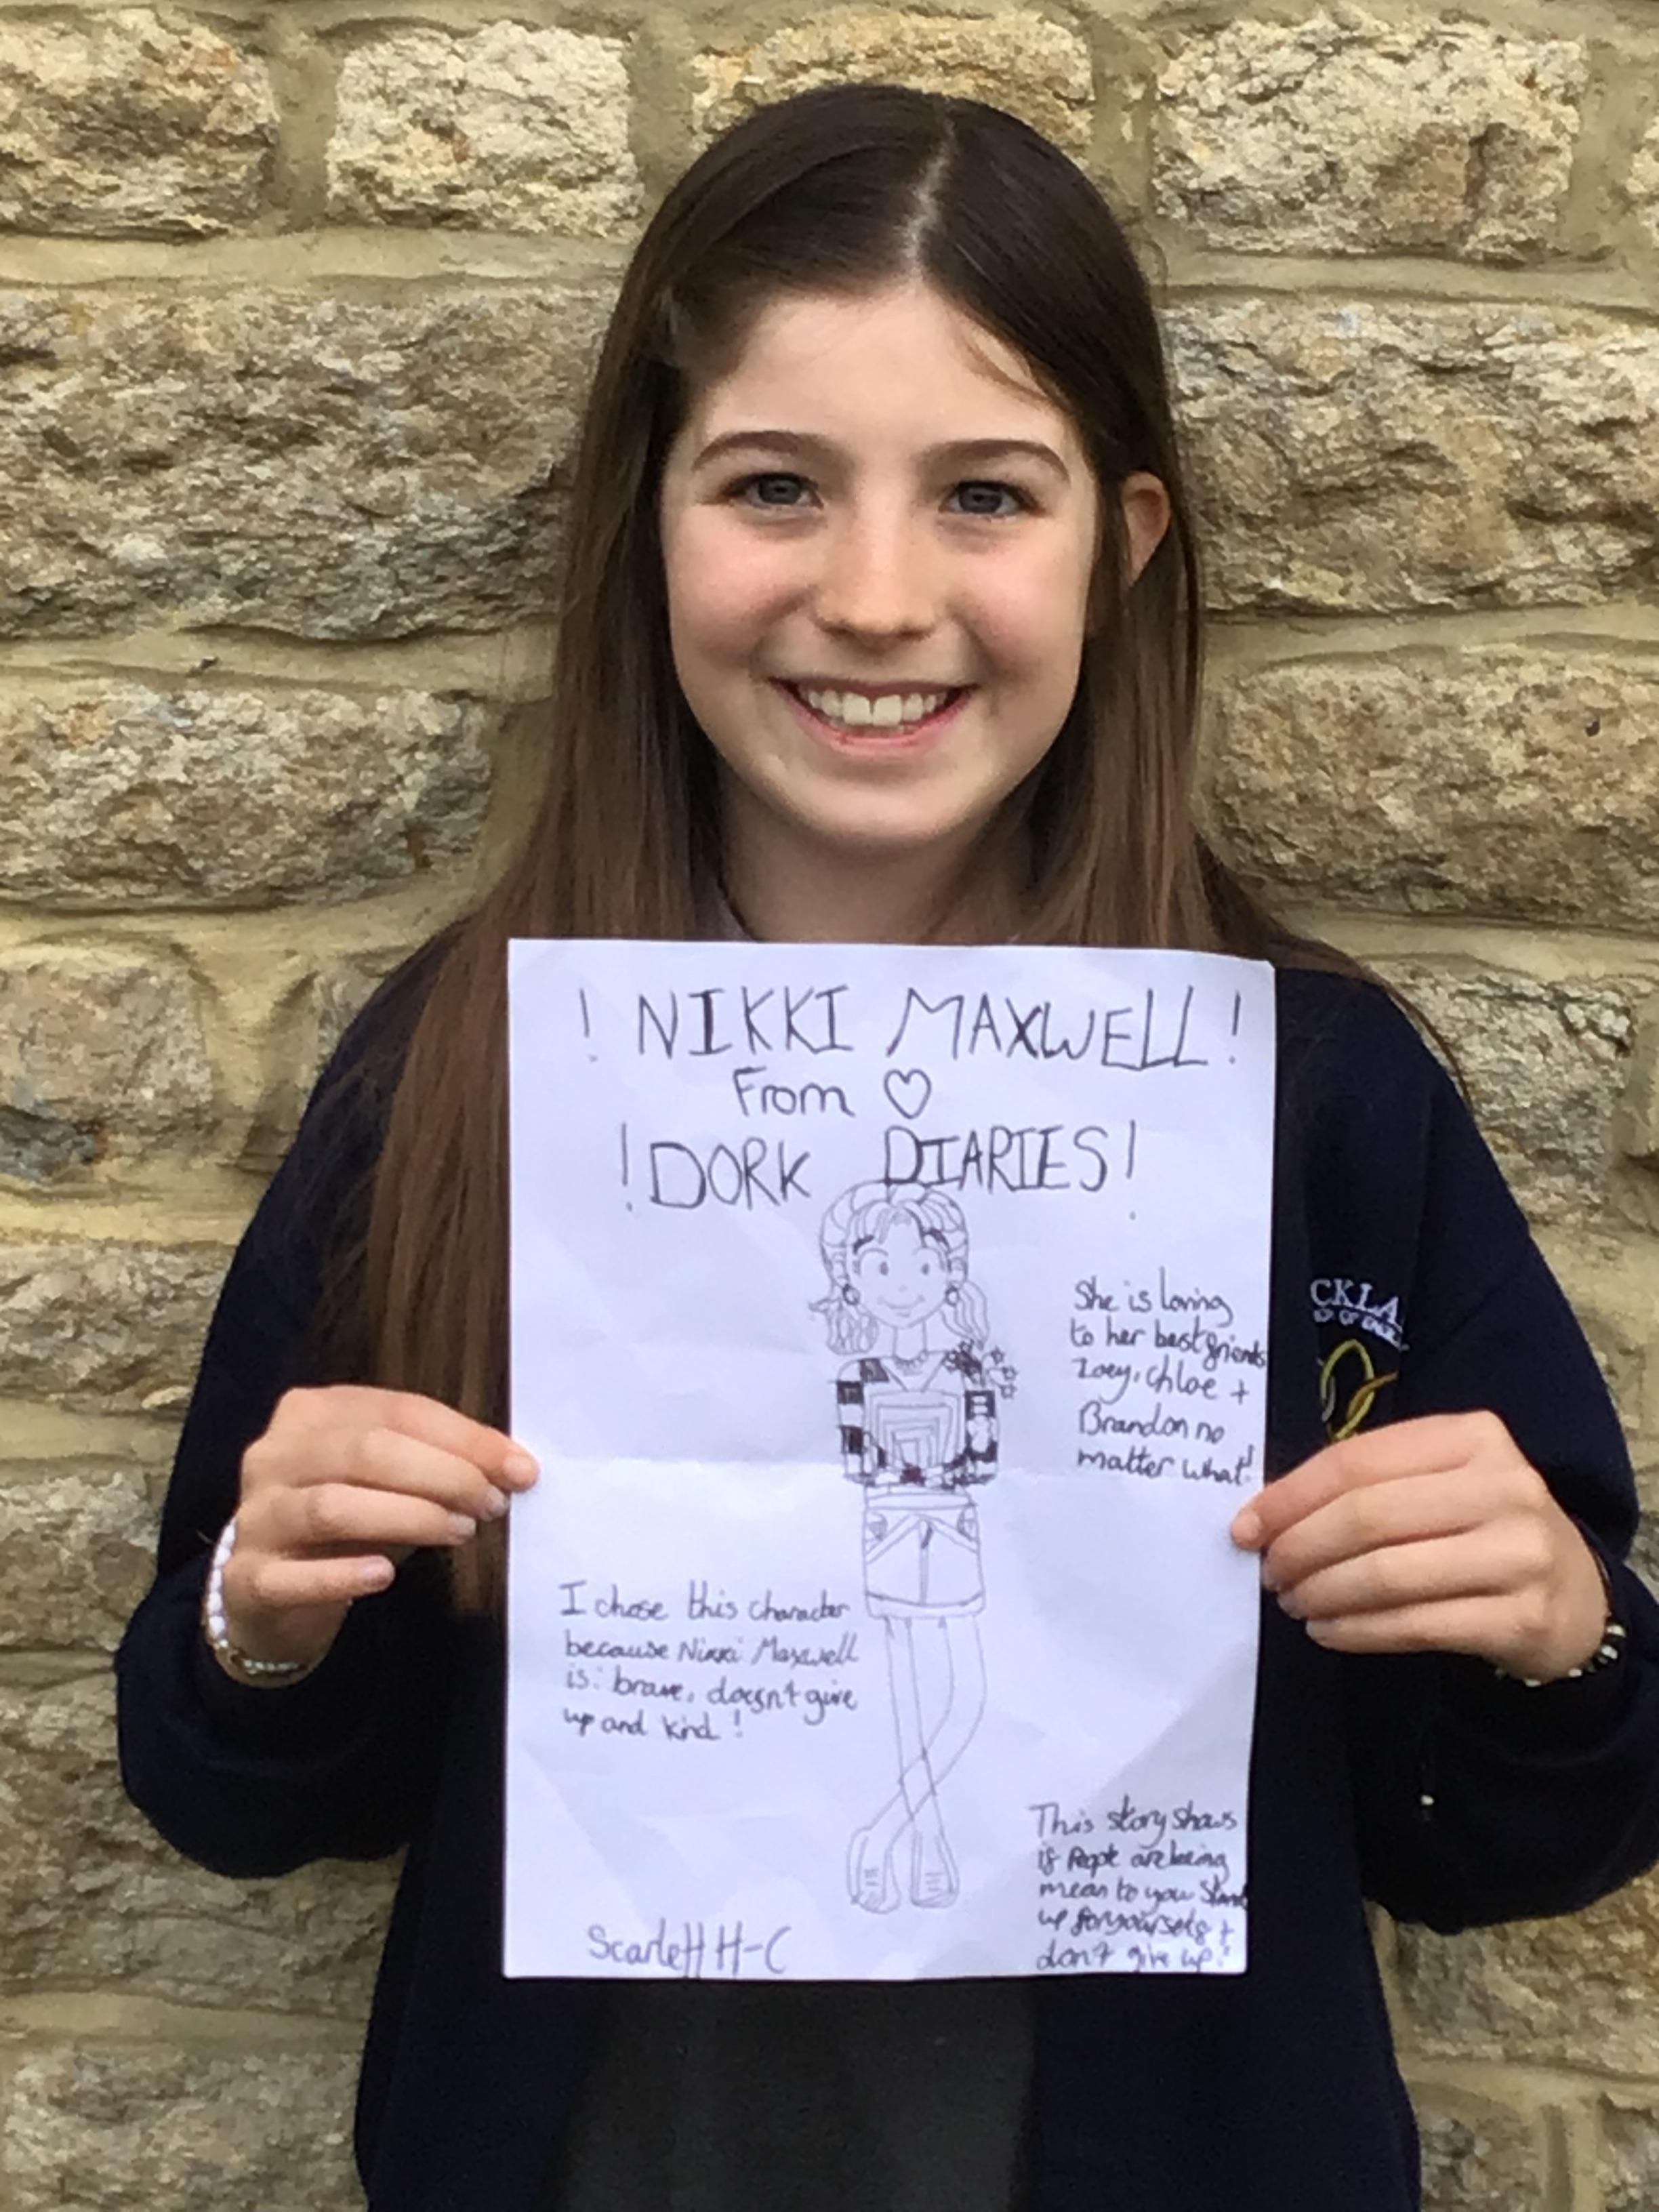 ! NIKKI MAXWELL !
From ♡
! DORK DIARIES !
She is loving
to her best friends
Zoey, Chloe +
Brandon no
matter what!
I chose this character
because Nikki Maxwell
is: brave, doesn't give
up and kind!
This story shows
if People are being
mean to you Stand
up for yourself +
don't give up!
Scarlett H-C
CKLA